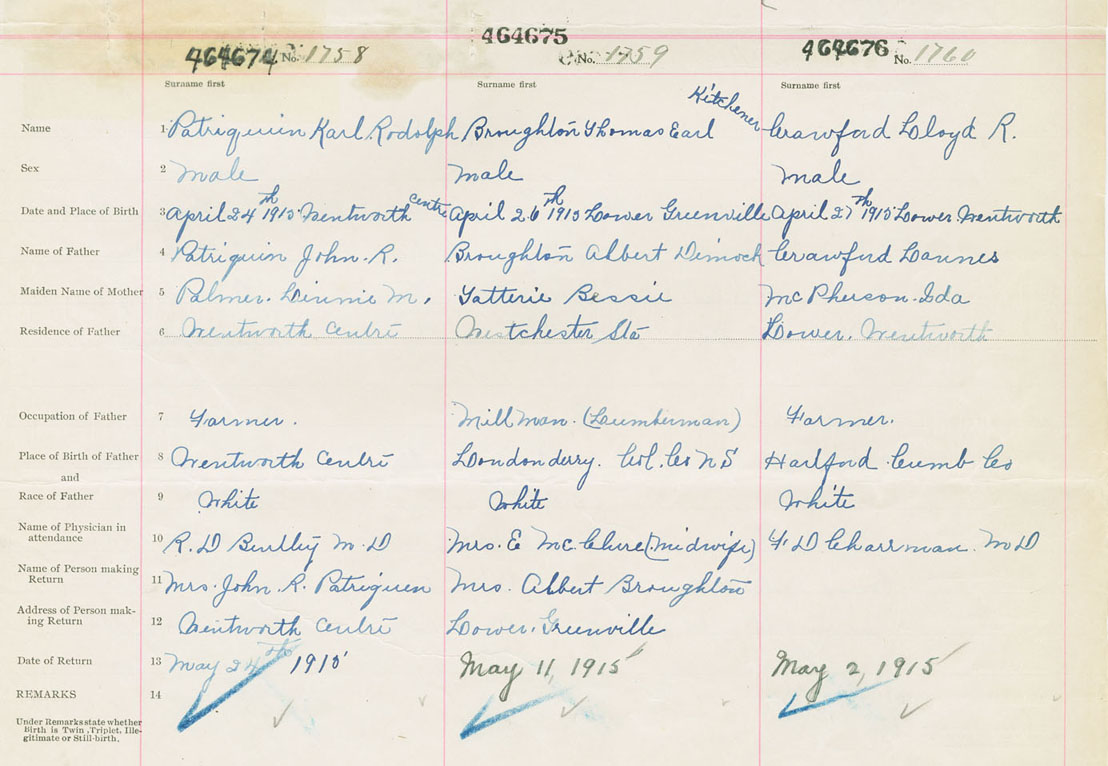 464674 No. 1758 464675 No. 1759 464676 No. 1760
Surname first Surname first Surname first
Kitchener
Name 1 Patriquin Karl Rodolph Broughton Thomas Earl Crawford Lloyd R.
Sex 2 Male Male Male
Date and Place of Birth 3 April 24th 1915 Wentworth Centre April 26th 1915 Lower Greenville April 27th 1915 Lower Wentworth
Name of Father 4 Patriquin John. R. Broughton Albert Dimock Crawford Lannes
Maiden Name of Mother 5 Palmer. Linnie M. Tatterie Bessie McPherson. Ida
Residence of Father 6 Wentworth Centre Westchester Sta Lower. Wentworth
Occupation of Father 7 Farmer. Mill man. (Lumberman) Farmer.
Place of Birth of Father 8 Wentworth Centre Londonderry. Col. Co N S Hartford Cumb Co
and
Race of Father 9 White White White
Name of Physician in
attendance 10 R. D Bentley M. D Mrs. E McClure (Midwife) F. D Charman. M D
Name of Person making
Return 11 Mrs. John. R. Patriquen Mrs. Albert Broughton
Address of Person mak-
ing Return 12 Wentworth Centre Lower. Greenville
Date of Return 13 May 24th 1915 May 11, 1915 May 2, 1915
REMARKS 14
Under Remarks state whether
Birth is Twin, Triplet, Ille-
gitimate or Still-birth.